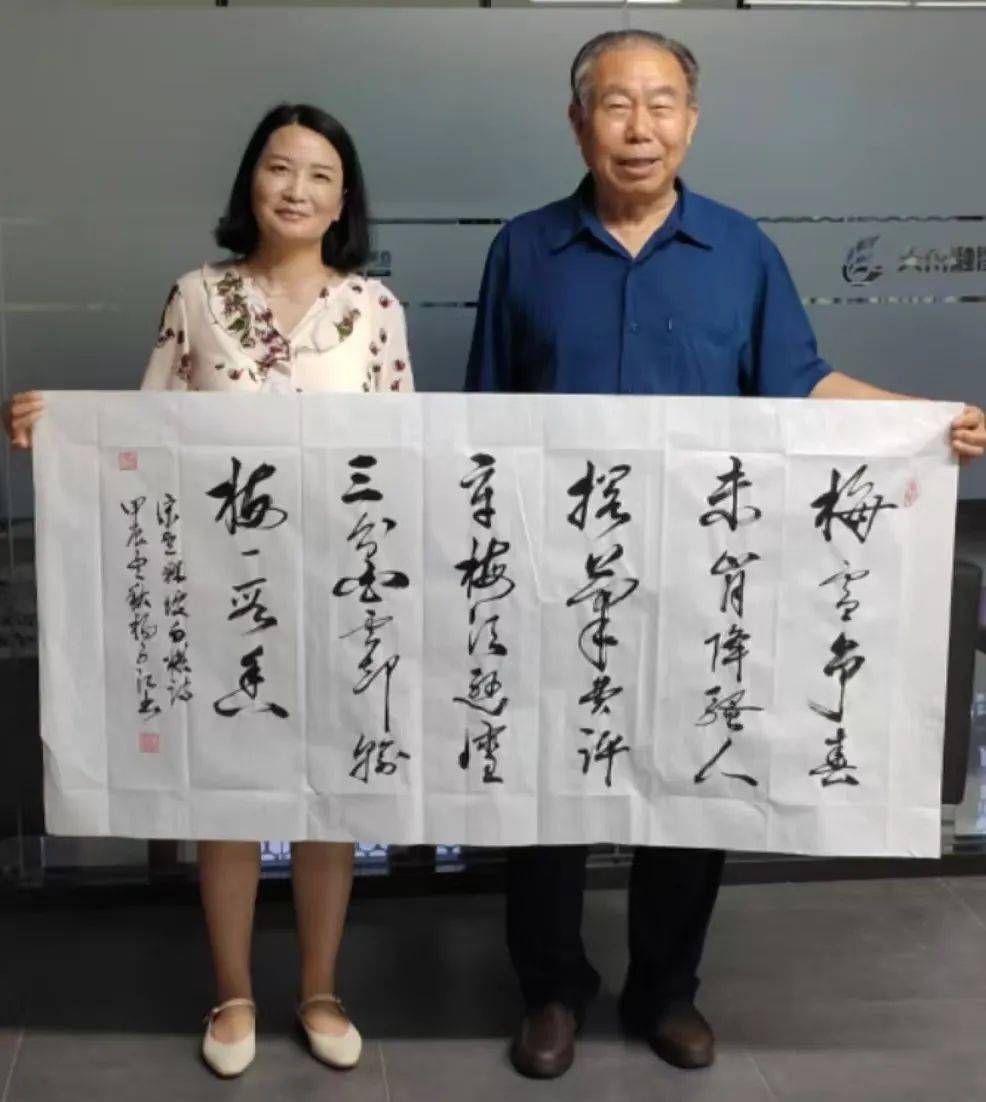 梅雪争春
未肯降骚人
搁笔费评
章梅须逊雪
三分白雪却输
梅一段香
宋卢梅坡雪梅诗
甲辰之秋杨子江书